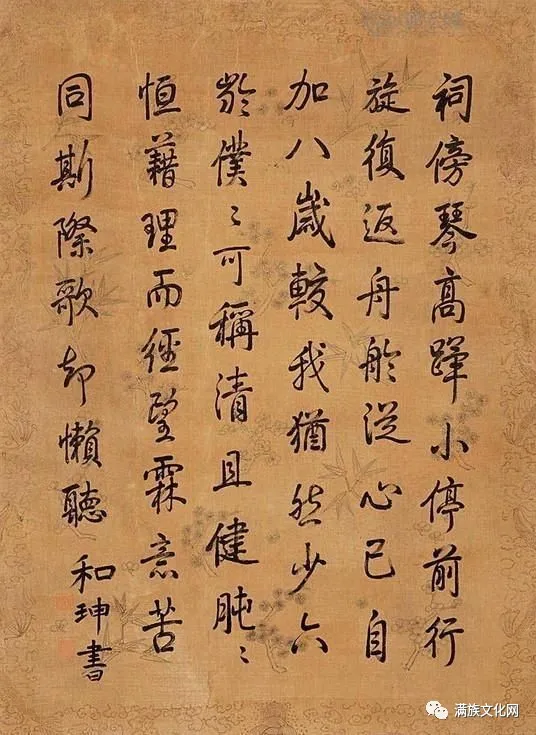 祠傍琴高蹕小停前行
旋復返舟舲從心已自
加八歲較我猶然少六
齡僕〻可稱清且健肫〻
恒藉理而經望霖意苦
同斯際歌却懶聽
和珅書
满族文化网